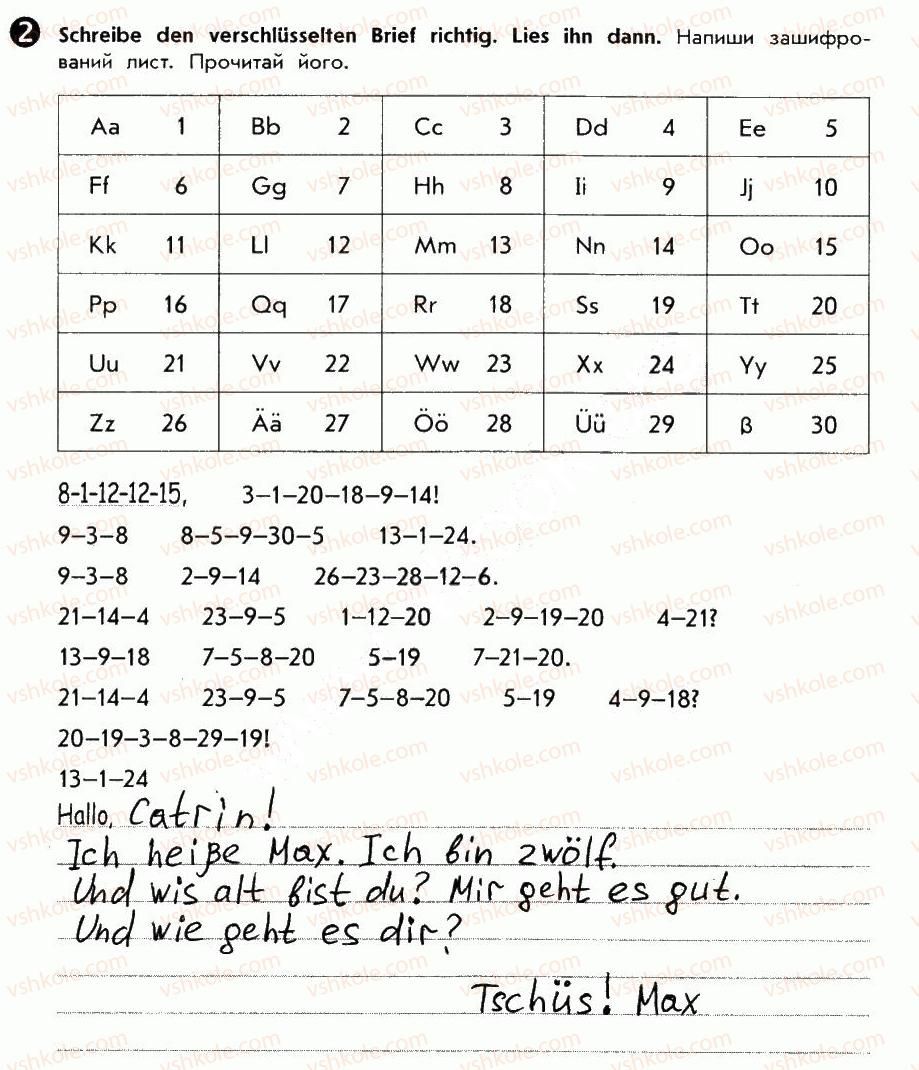 2 Schreibe den verschlüsselten Brief richtig. Lies ihn dann. Напиши зашифро-
ваний лист. Прочитай його.
Aa 1 Bb 2 Cc 3 Dd 4 Ee 5
Ff 6 Gg 7 Hh 8 Ii 9 Jj 10
Kk 11 Ll 12 Mm 13 Nn 14 Oo 15
Pp 16 Qq 17 Rr 18 Ss 19 Tt 20
Uu 21 Vv 22 Ww 23 Xx 24 Yy 25
Zz 26 Ää 27 Öö 28 Üü 29 ß 30
8-1-12-12-15, 3–1–20–18–9–14!
9–3–8 8–5–9–30–5 13–1–24.
9–3–8 2–9–14 26–23–28–12–6.
21–14–4 23–9–5 1–12–20 2–9–19–20 4–21?
13–9–18 7–5–8–20 5–19 7–21–20.
21–14–4 23–9–5 7–5–8–20 5–19 4–9–18?
20–19–3–8–29–19!
13–1–24
Hallo, Catrin!
Ich heiße Max. Ich bin zwölf.
Und wis alt bist du? Mir geht es gut.
Und wie geht es dir?
Tschüs! Max